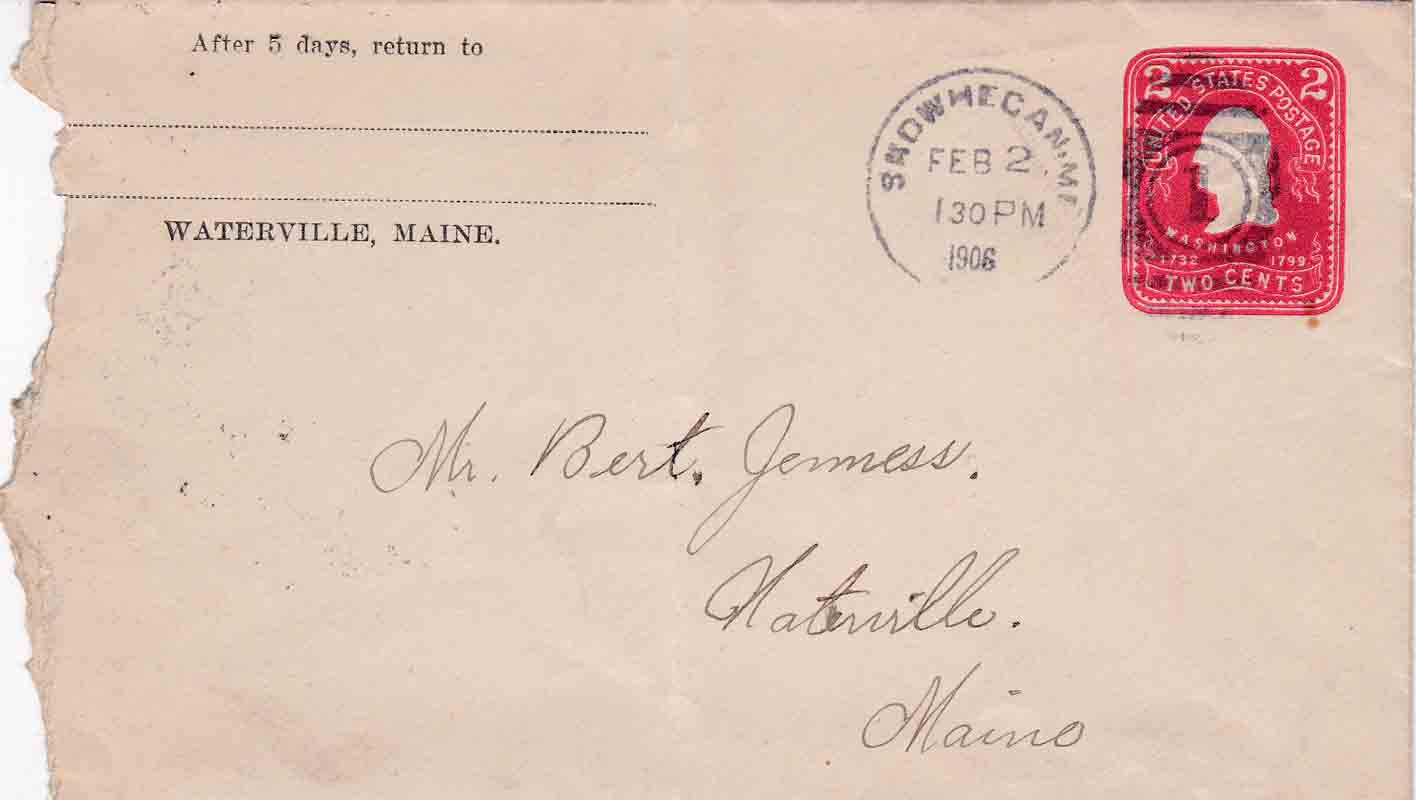 After 5 days, return to
WATERVILLE, MAINE.
SKOWHEGAN, ME.
FEB 2
1 30 PM
1906
2 2
UNITED STATES POSTAGE
1
WASHINGTON
1732 1799
TWO CENTS
Mr. Bert. Jenness.
Waterville.
Maine